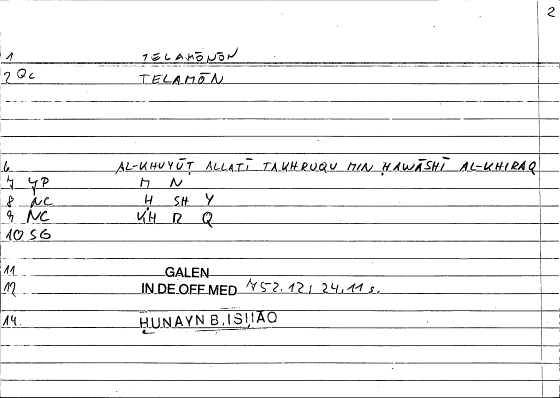 2
1 TELAMŌNŌN
2 Qc TELAMŌN
6 AL-KHUYŪṬ ALLATĪ TAKHRUQU MIN ḤAWĀSHĪ AL-KHIRAQ
7 YP M N
8 NC Ḥ SH Y
9 NC KH R Q
10 SG
11 GALEN
12 IN DE.OFF.MED 752.12; 24.11 s.
14. ḤUNAYN B. ISḤĀQ